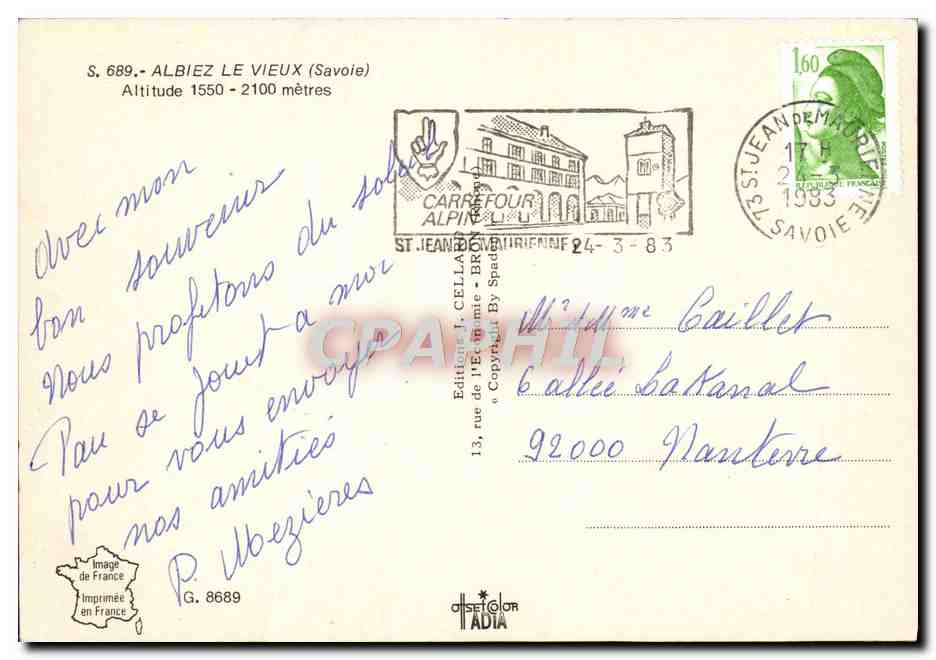 S. 689.- ALBIEZ LE VIEUX (Savoie)
Altitude 1550 - 2100 mètres
avec mon
bon souvenir
Nous profitons du soleil
Pau se joint a moi
pour vous envoyer
nos amitiés
P. Mezières
Image
de France
Imprimée
en France
G. 8689
CARREFOUR
ALPIN
ST JEAN DE MAURIENNE 24-3-83
1,60
REPUBLIQUE FRANCAISE
73 ST JEAN DE MAURIENNE
17 H
24-3
1983
SAVOIE
Editions J. CELLARD
13, rue de l'Economie - BRON (Rhône)
« Copyright By Spadem
CPArHIL
Mr et Mme Caillet
6 allée Lakanal
92000 Nanterre
OffsetColor
ADIA